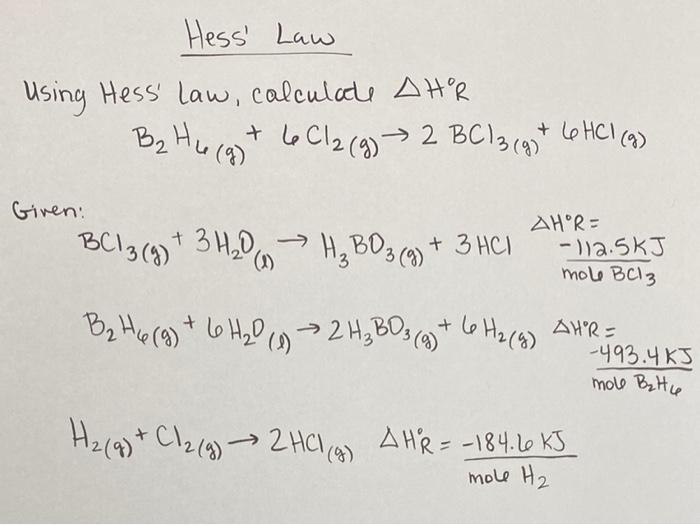 Hess' Law
Using Hess' Law, calculate ΔH°R
B₂H₆(g) + 6Cl₂(g) → 2 BCl₃(g) + 6HCl(g)
Given:
BCl₃(g) + 3H₂O(l) → H₃BO₃(g) + 3HCl ΔH°R = -112.5KJ / mole BCl₃
B₂H₆(g) + 6H₂O(l) → 2H₃BO₃(g) + 6H₂(g) ΔH°R = -493.4KJ / mole B₂H₆
H₂(g) + Cl₂(g) → 2HCl(g) ΔH°R = -184.6 KJ / mole H₂